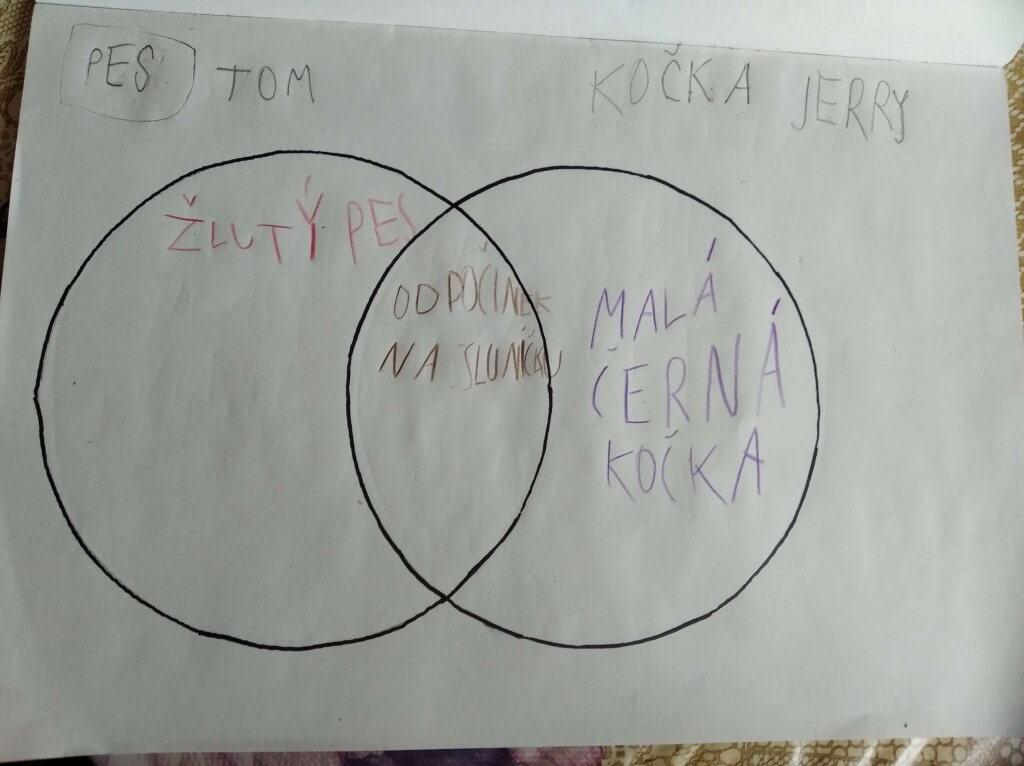 PES TOM
KOČKA JERRY
ŽLUTÝ PES
ODPOČINEK
NA SLUNÍČKU
MALÁ
ČERNÁ
KOČKA